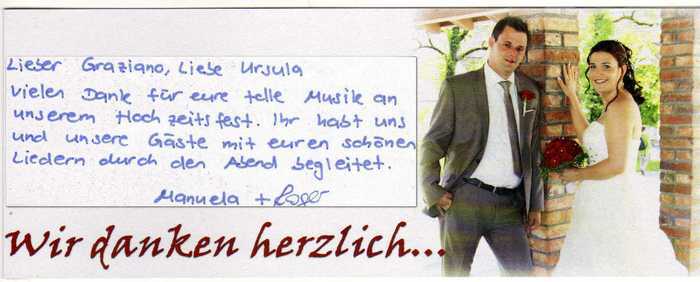 Lieber Graziano, Liebe Ursula
Vielen Dank für eure tolle Musik an
unserem Hochzeitsfest. Ihr habt uns
und unsere Gäste mit euren schönen
Liedern durch den Abend begleitet.
Manuela + Roger
Wir danken herzlich...